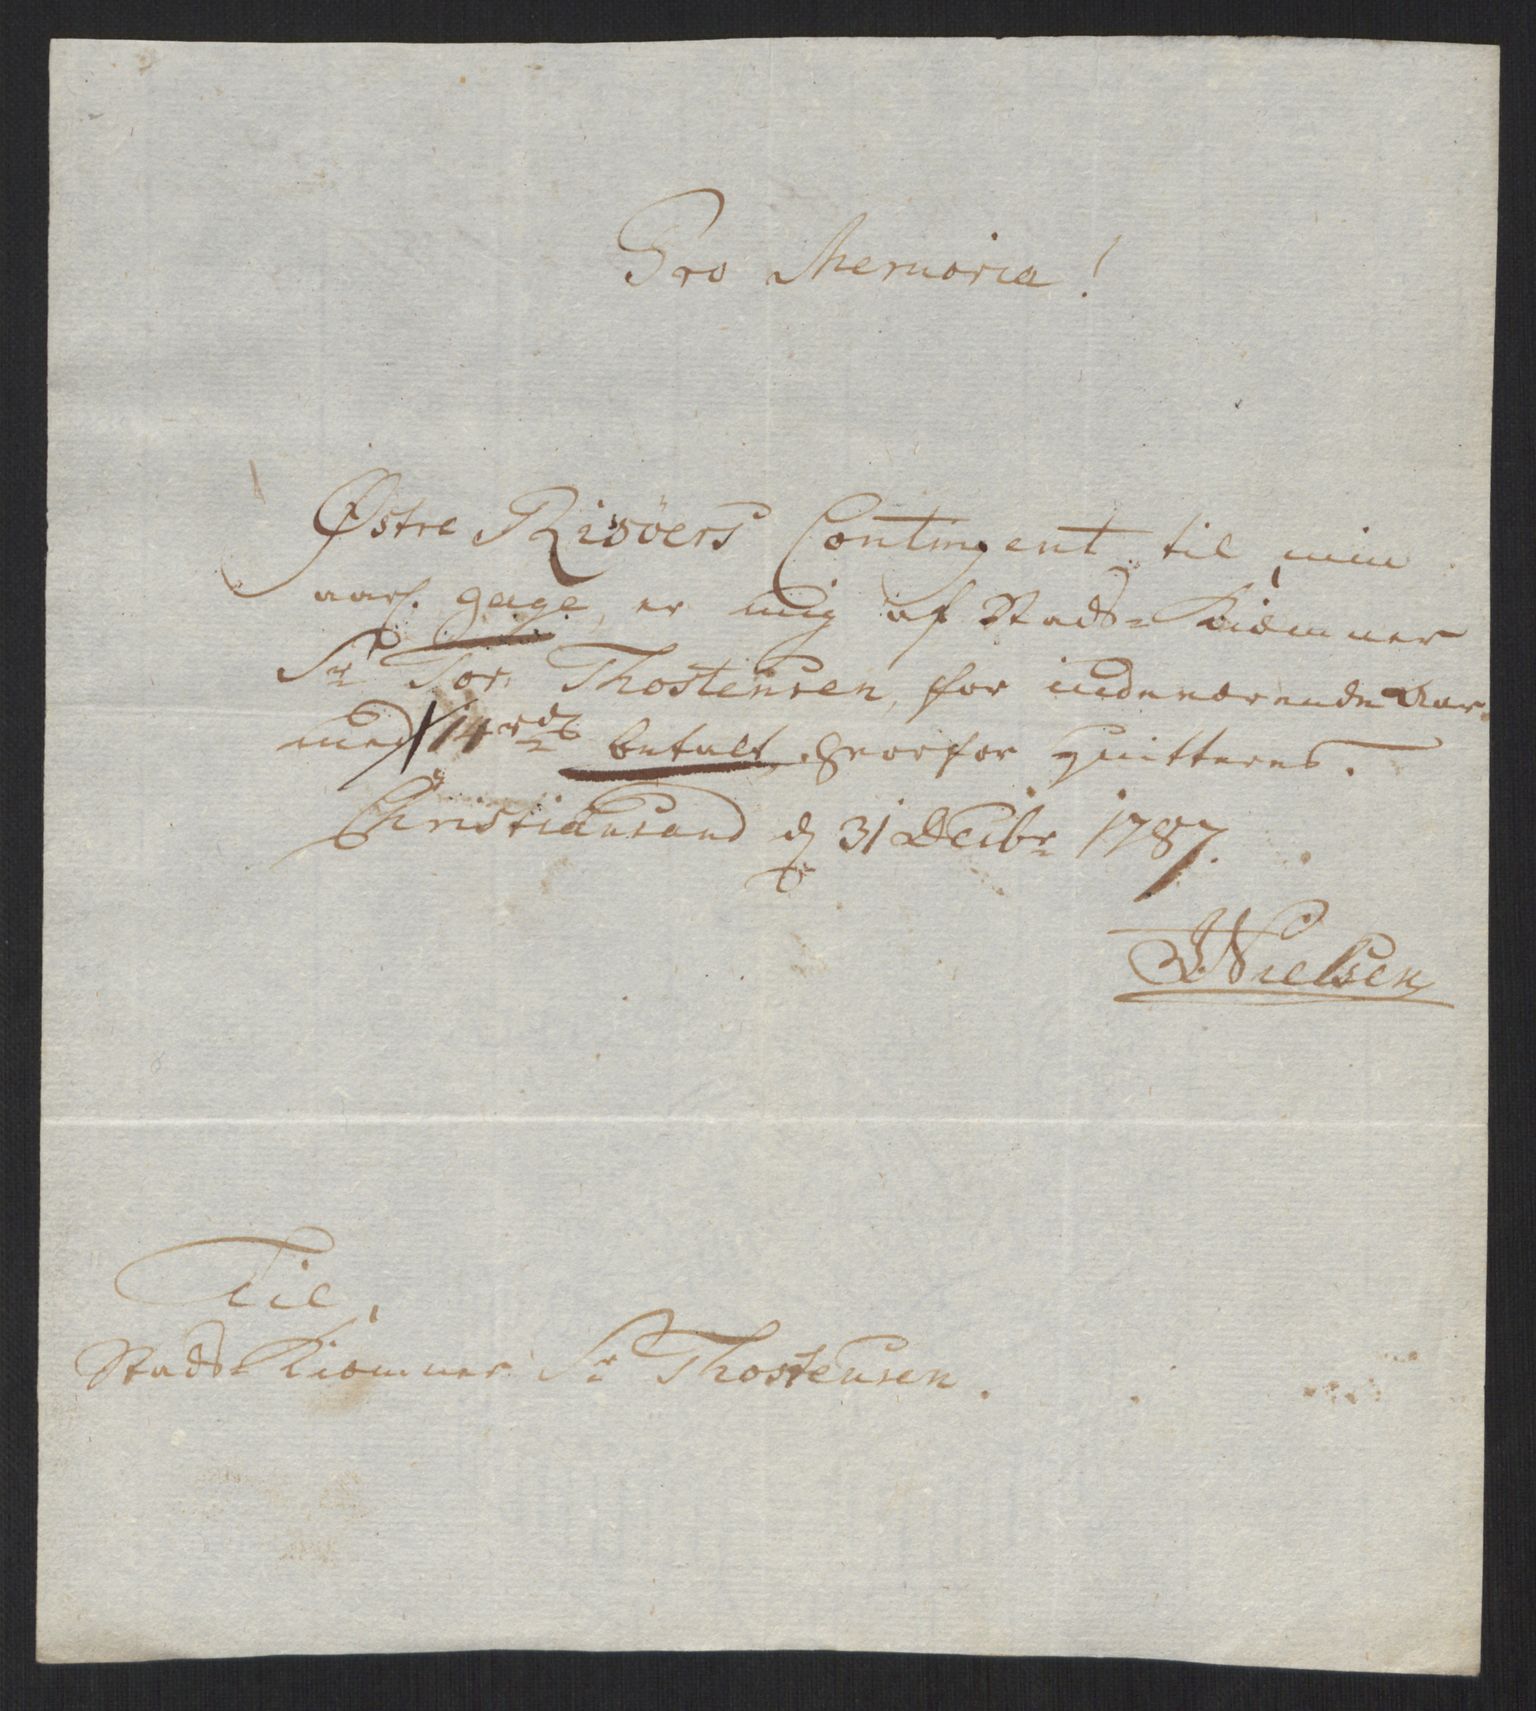 Pro Memoria!
Østre Risöers Contingent til min
aarl. gage, er mig af Stads-Kiæmner
Sr Tor Thostensen, for indeværende Aar
med 14 rd betalt, hvorfor quitteres.
Christiansand d 31 Decbr 1787.
Nielsen
Til
Stads-Kiæmner Sr Thostensen.